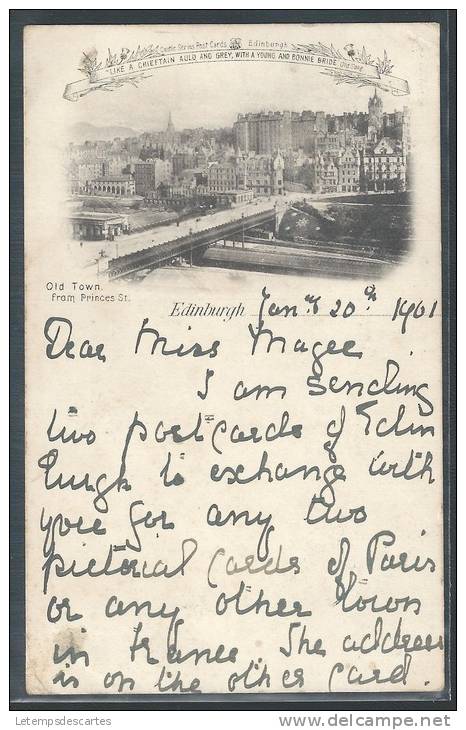 Castle Series Post Cards Edinburgh
"LIKE A CHIEFTAIN AULD AND GREY, WITH A YOUNG AND BONNIE BRIDE
Old Town
from Princes St.
Edinburgh Jany 20th 1901
Dear Miss Magee
I am sending
two postcards of Edin
burgh to exchange with
you for any two
pictorial cards of Paris
or any other town
in France. The address
is on the other card.
Letempsdescartes